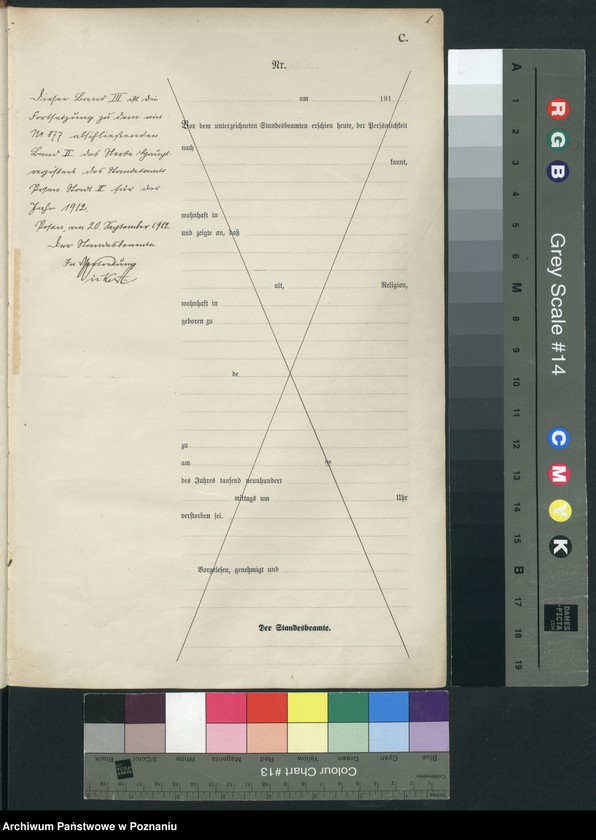 1
C.
Nr.
am 191
Dieser Band III ist die
Fortsetzung zu dem mit
No 877 abschließenden
Band II des Sterbe-Haupt-
registers des Standesamts
Posen Stadt II für das
Jahr 1912.
Posen, am 20. September 1912.
Der Standesbeamte
In Vertretung
Vor dem unterzeichneten Standesbeamten erschien heute, der Persönlichkeit
nach
kannt,
wohnhaft in
und zeigte an, daß
alt, Religion,
wohnhaft in
geboren zu
de
zu
am te
des Jahres tausend neunhundert
mittags um Uhr
verstorben sei.
Vorgelesen, genehmigt und
Der Standesbeamte.
A 1 2 3 4 5 6 M 8 9 10 11 12 13 14 15 B 17 18 19
R G B
Grey Scale #14
C M Y K
DANES
-PICTA
.COM
Blue Cyan Green Yellow Red Magenta White 3/Color Black
Colour Chart #13
Archiwum Państwowe w Poznaniu